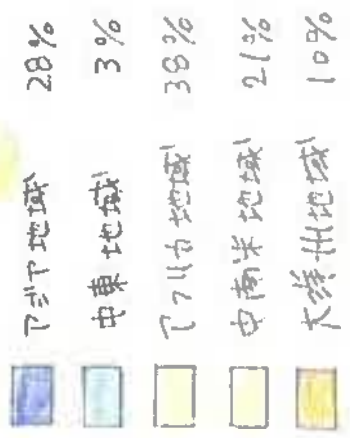 アジア地域 28%
中東地域 3%
アフリカ地域 38%
中南米地域 21%
大洋州地域 10%